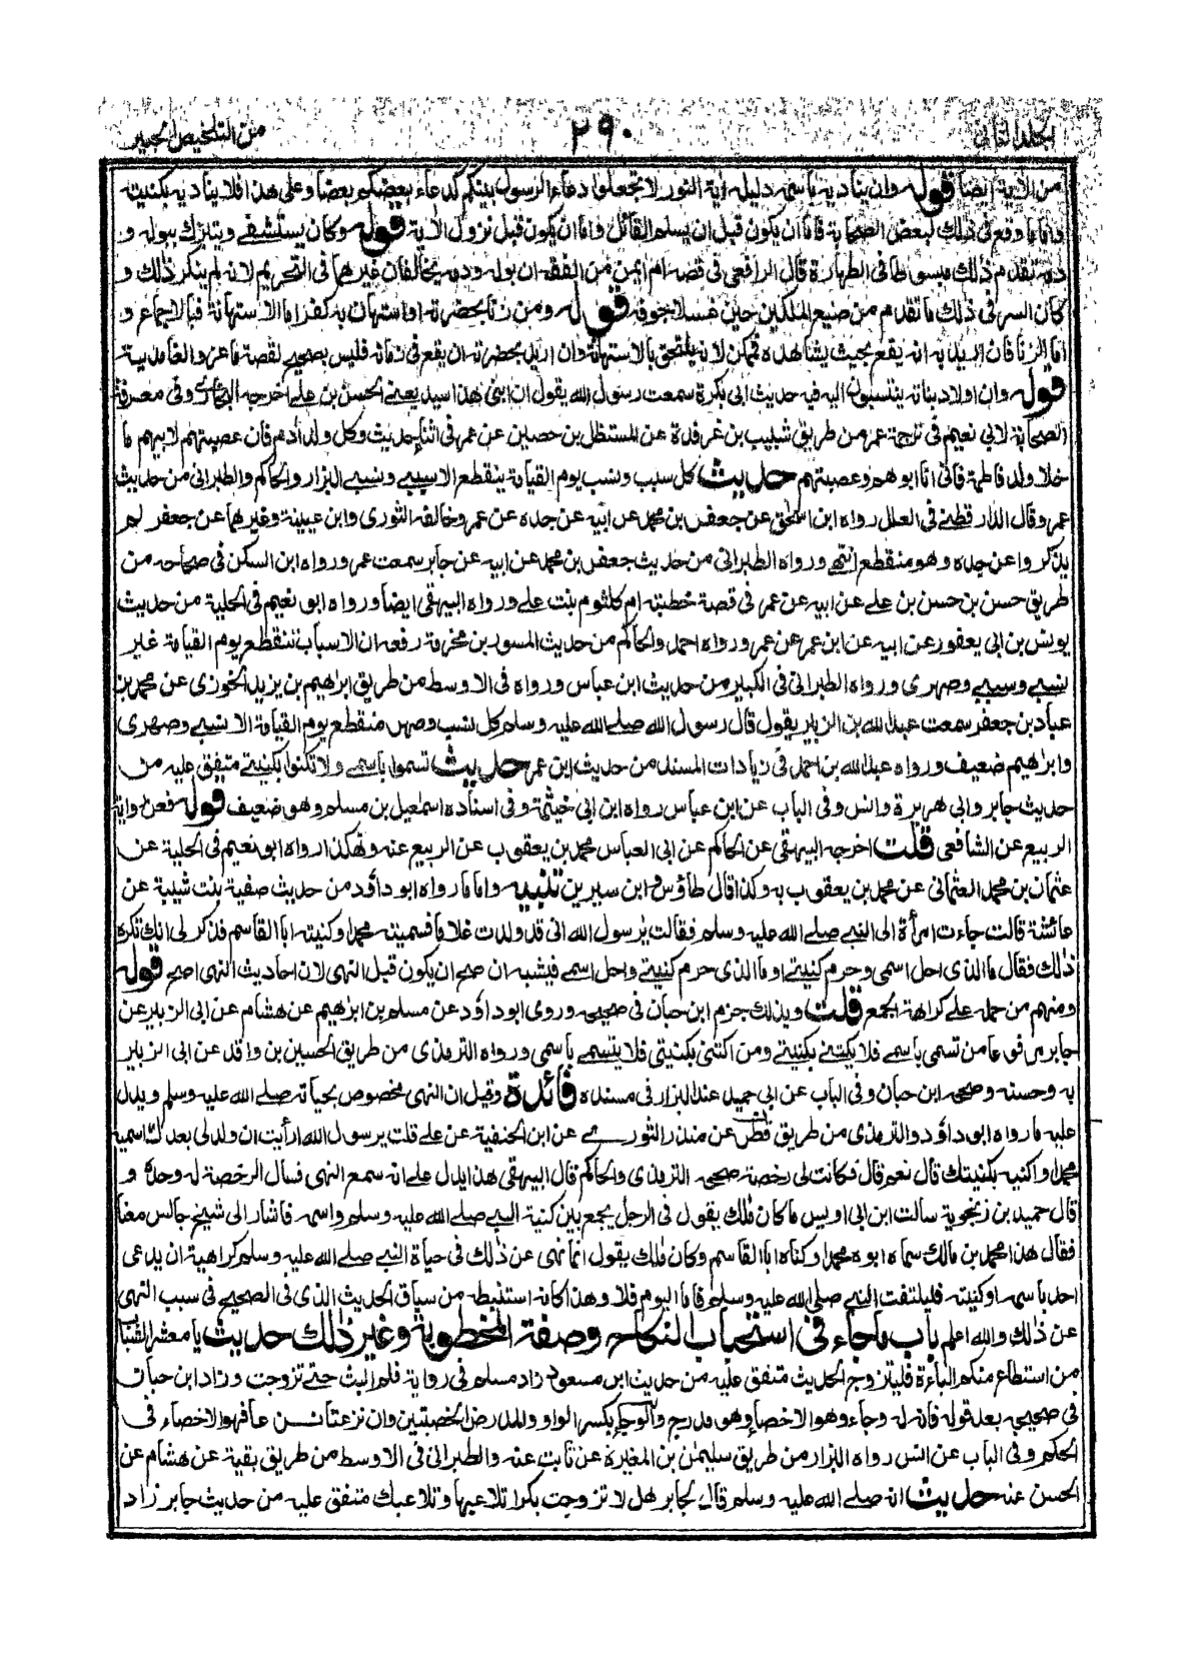 الجلد الثانى ٢٩٠ من التلخيص الحبير
من الآية ايضا قوله وان يناديه باسمه دليله آية النور لا تجعلوا دعاء الرسول بينكم كدعاء بعضكم بعضا وعلى هذا فلا يناديه بكنيته
واما ما وقع فى ذلك لبعض الصحابة فاما ان يكون قبل ان يسلم القائل واما ان يكون قبل نزول الآية قوله وكان يستشفى ويتبرك ببوله و
دمه تقدم ذلك مبسوطا فى الطهارة قال الرافعى فى قصة ام ايمن من الفقه ان بوله ودمه يخالفان غيرهما فى التحريم لانه لم ينكر ذلك و
كان السر فى ذلك ما تقدم من صنيع الملكين حين غسلا جوفه قوله ومن زنا بحضرته او استهان به كفر اما الاستهانة فبالاجماع و
اما الزنا فان اريد به انه يقع بحيث يشاهده فممكن لانه يلتحق بالاستهانة وان اريد بحضرته ان يقع فى زمانه فليس بصحيح لقصة ماعز والغامدية
قوله وان اولاد بناته ينتسبون اليه فيه حديث ابى بكرة سمعت رسول الله يقول ان ابنى هذا سيد يعنى الحسن بن على اخرجه البخارى وفى معرفة
الصحابة لابى نعيم فى ترجمة عمر من طريق شبيب بن غرقدة عن المستظل بن حصين عن عمر فى اثناء حديث وكل ولد آدم فان عصبتهم لابيهم ما
خلا ولد فاطمة فانى انا ابوهم وعصبتهم حديث كل سبب ونسب يوم القيامة ينقطع الا سببى ونسبى البزار والحاكم والطبرانى من حديث
عمر وقال الدارقطنى فى العلل رواه ابن اسحق عن جعفر بن محمد عن ابيه عن جده عن عمر وخالفه الثورى وابن عيينة وغيرهما عن جعفر لم
يذكروا عن جده وهو منقطع انتهى ورواه الطبرانى من حديث جعفر بن محمد عن ابيه عن جابر سمعت عمر ورواه ابن السكن فى صحاحه من
طريق حسن بن حسن بن على عن ابيه عن عمر فى قصة خطبته ام كلثوم بنت على ورواه البيهقى ايضا ورواه ابو نعيم فى الحلية من حديث
يونس بن ابى يعفور عن ابيه عن ابن عمر عن عمر ورواه احمد والحاكم من حديث المسور بن مخرمة رفعه ان الاسباب تنقطع يوم القيامة غير
نسبى وسببى وصهرى ورواه الطبرانى فى الكبير من حديث ابن عباس ورواه فى الاوسط من طريق ابراهيم بن يزيد الخوزى عن محمد بن
عباد بن جعفر سمعت عبد الله بن الزبير يقول قال رسول الله صلى الله عليه وسلم كل نسب وصهر منقطع يوم القيامة الا نسبى وصهرى
وابرهيم ضعيف ورواه عبد الله بن احمد فى زيادات المسند من حديث ابن عمر حديث تسموا باسمى ولا تكنوا بكنيتى متفق عليه من
حديث جابر وابى هريرة وانس وفى الباب عن ابن عباس رواه ابن ابى خيثمة وفى اسناده اسمعيل بن مسلم وهو ضعيف قوله فعن رواية
الربيع عن الشافعى قلت اخرجه البيهقى عن الحاكم عن ابى العباس محمد بن يعقوب عن الربيع عنه وهكذا رواه ابو نعيم فى الحلية عن
عثمان بن محمد العثمانى عن محمد بن يعقوب به وكذا قال طاؤس وابن سيرين تنبيه واما ما رواه ابو داؤد من حديث صفية بنت شيبة عن
عائشة قالت جاءت امرأة الى النبى صلى الله عليه وسلم فقالت يرسول الله انى قد ولدت غلاما فسميته محمدا وكنيته ابا القاسم فذكر لى انك تكره
ذلك فقال ما الذى احل اسمى وحرم كنيتى او ما الذى حرم كنيتى واحل اسمى فيشبه ان صح ان يكون قبل النهى لان احاديث النهى اصح قوله
ومنهم من حمله على كراهة الجمع قلت وبذلك جزم ابن حبان فى صحيحه وروى ابو داؤد عن مسلم بن ابرهيم عن هشام عن ابى الزبير عن
جابر مرفوعا من تسمى باسمى فلا يكتنى بكنيتى ومن اكتنى بكنيتى فلا يتسمى باسمى ورواه الترمذى من طريق الحسين بن واقد عن ابى الزبير
به وحسنه وصححه ابن حبان وفى الباب عن ابى حميد عند البزار فى مسنده فائدة وقيل ان النهى مخصوص بحياته صلى الله عليه وسلم ويدل
عليه ما رواه ابو داؤد والترمذى من طريق فطر عن منذر الثورى عن ابن الحنفية عن على قلت يرسول الله ارأيت ان ولد لى بعدك اسميه
محمدا واكنيه بكنيتك قال نعم قال فكانت لى رخصة صححه الترمذى والحاكم قال البيهقى هذا يدل على انه سمع النهى فسال الرخصة له وحده و
قال حميد بن زنجوية سالت ابن ابى اويس ما كان مالك يقول فى الرجل يجمع بين كنية النبى صلى الله عليه وسلم واسمه فاشار الى شيخ جالس معنا
فقال هذا محمد بن مالك سماه ابوه محمدا وكناه ابا القاسم وكان مالك يقول انما نهى عن ذلك فى حياة النبى صلى الله عليه وسلم كراهية ان يدعى
احد باسمه او كنيته فليلتفت النبى صلى الله عليه وسلم فاما اليوم فلا وهذا كانه استنبطه من سياق الحديث الذى فى الصحيح فى سبب النهى
عن ذلك والله اعلم باب ما جاء فى استحباب النكاح وصفة المخطوبة وغير ذلك حديث يا معشر الشباب
من استطاع منكم الباءة فليتزوج الحديث متفق عليه من حديث ابن مسعود زاد مسلم فى رواية فلم البث حتى تزوجت وزاد ابن حبان
فى صحيحه بعد قوله فانه له وجاء وهو الاخصاء وهو مدرج والوجاء بكسر الواو والمد رض الخصيتين وان نزعتا نزعا فهو الاخصاء فى
الحكم وفى الباب عن انس رواه البزار من طريق سليمن بن المغيرة عن ثابت عنه والطبرانى فى الاوسط من طريق بقية عن هشام عن
الحسن عنه حديث انه صلى الله عليه وسلم قال لجابر هل لا تزوجت بكرا تلاعبها وتلاعبك متفق عليه من حديث جابر زاد